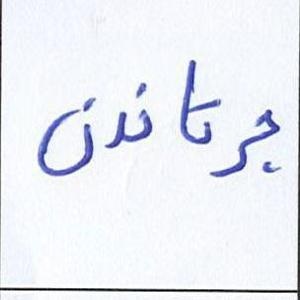 جرتاندن